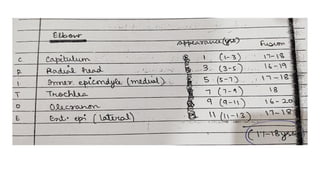 Elbow
Appearance (yrs) Fusion
C Capitulum 1 (1-3) 17-18
R Radial head 3 (3-5) 16-19
I Inner epicondyle (medial) 5 (5-7) 17-18
T Trochlea 7 (7-9) 18
O Olecranon 9 (9-11) 16-20
E Ext. epi (lateral) 11 (11-13) 17-18
(17-18 yrs